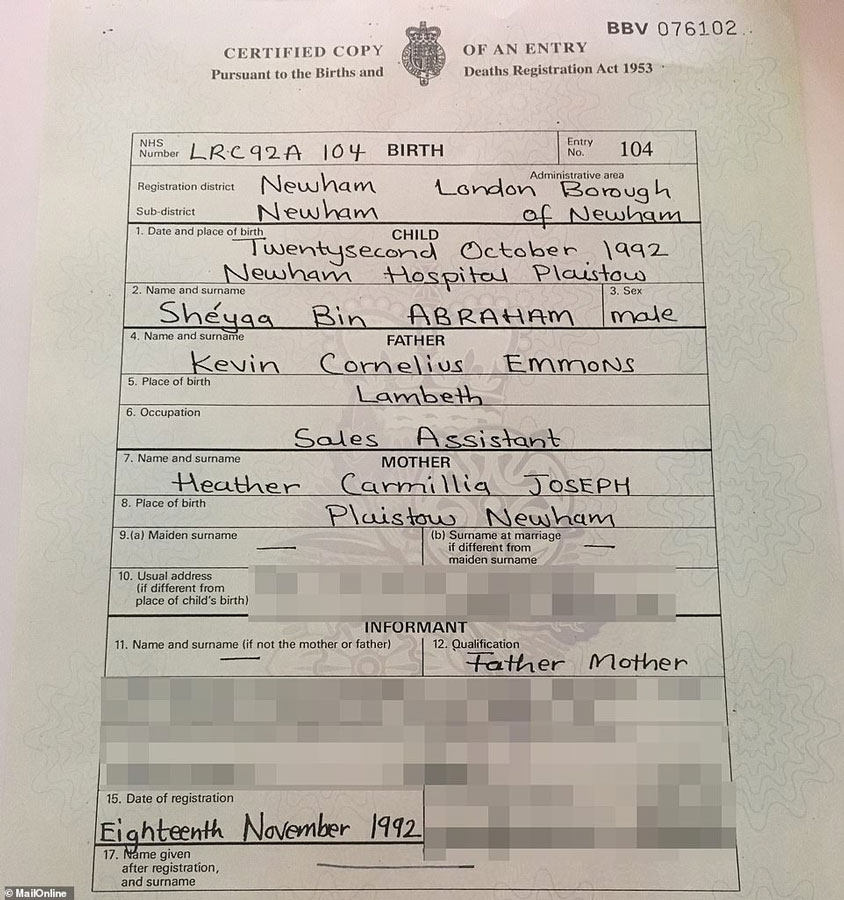 BBV 076102
CERTIFIED COPY OF AN ENTRY
Pursuant to the Births and Deaths Registration Act 1953
NHS Number LRC92A 104 BIRTH Entry No. 104
Administrative area
Registration district Newham London Borough
Sub-district Newham of Newham
1. Date and place of birth CHILD
Twentysecond October 1992
Newham Hospital Plaistow
2. Name and surname 3. Sex
Shéyaa Bin ABRAHAM male
4. Name and surname FATHER
Kevin Cornelius EMMONS
5. Place of birth
Lambeth
6. Occupation
Sales Assistant
7. Name and surname MOTHER
Heather Carmillia JOSEPH
8. Place of birth
Plaistow Newham
9.(a) Maiden surname — (b) Surname at marriage if different from maiden surname —
10. Usual address
(if different from
place of child's birth)
INFORMANT
11. Name and surname (if not the mother or father) 12. Qualification
— Father Mother
15. Date of registration
Eighteenth November 1992
17. Name given
after registration,
and surname
© MailOnline